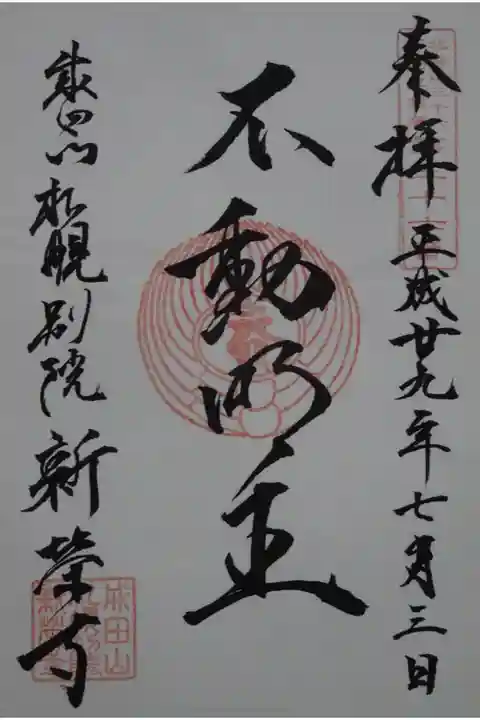 奉拝 正成廿九年七月三日
不動明王
成田山 札幌別院 新榮寺
成田山